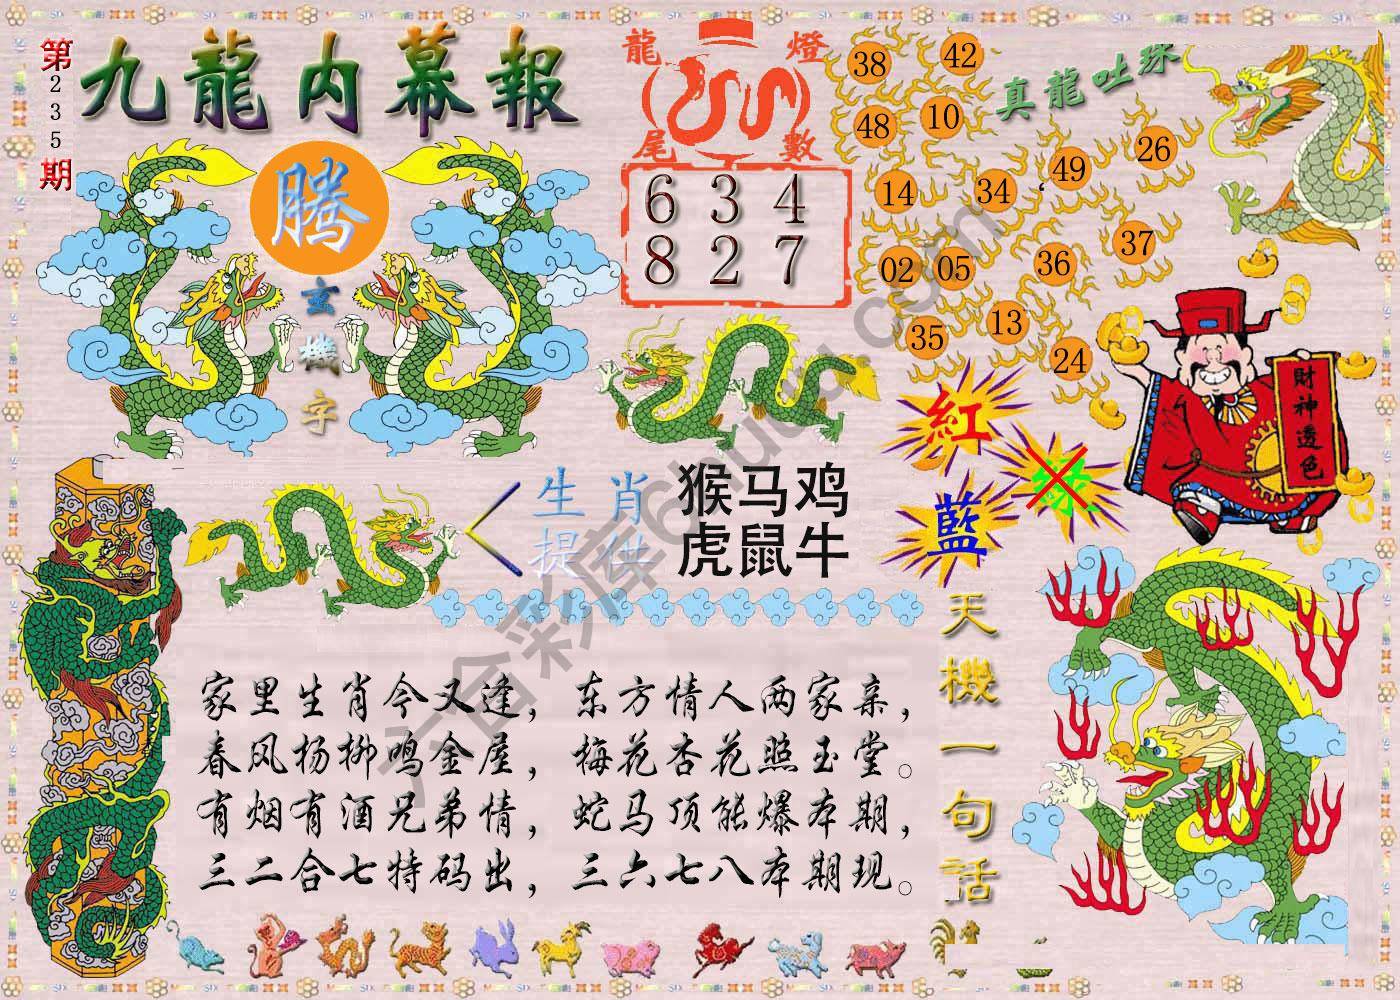 第235期
九龍内幕報
腾
玄機字
龍燈
尾數
6 3 4
8 2 7
真龍吐珠
38
42
48
10
14
34
49
26
02
05
36
37
35
13
24
紅
藍
綠
財神透色
生肖
提供
猴马鸡
虎鼠牛
家里生肖今又逢，东方情人两家亲，
春风杨柳鸣金屋，梅花杏花照玉堂。
有烟有酒兄弟情，蛇马顶能爆本期，
三二合七特码出，三六七八本期现。
天機一句话
六合彩库6huuu.com